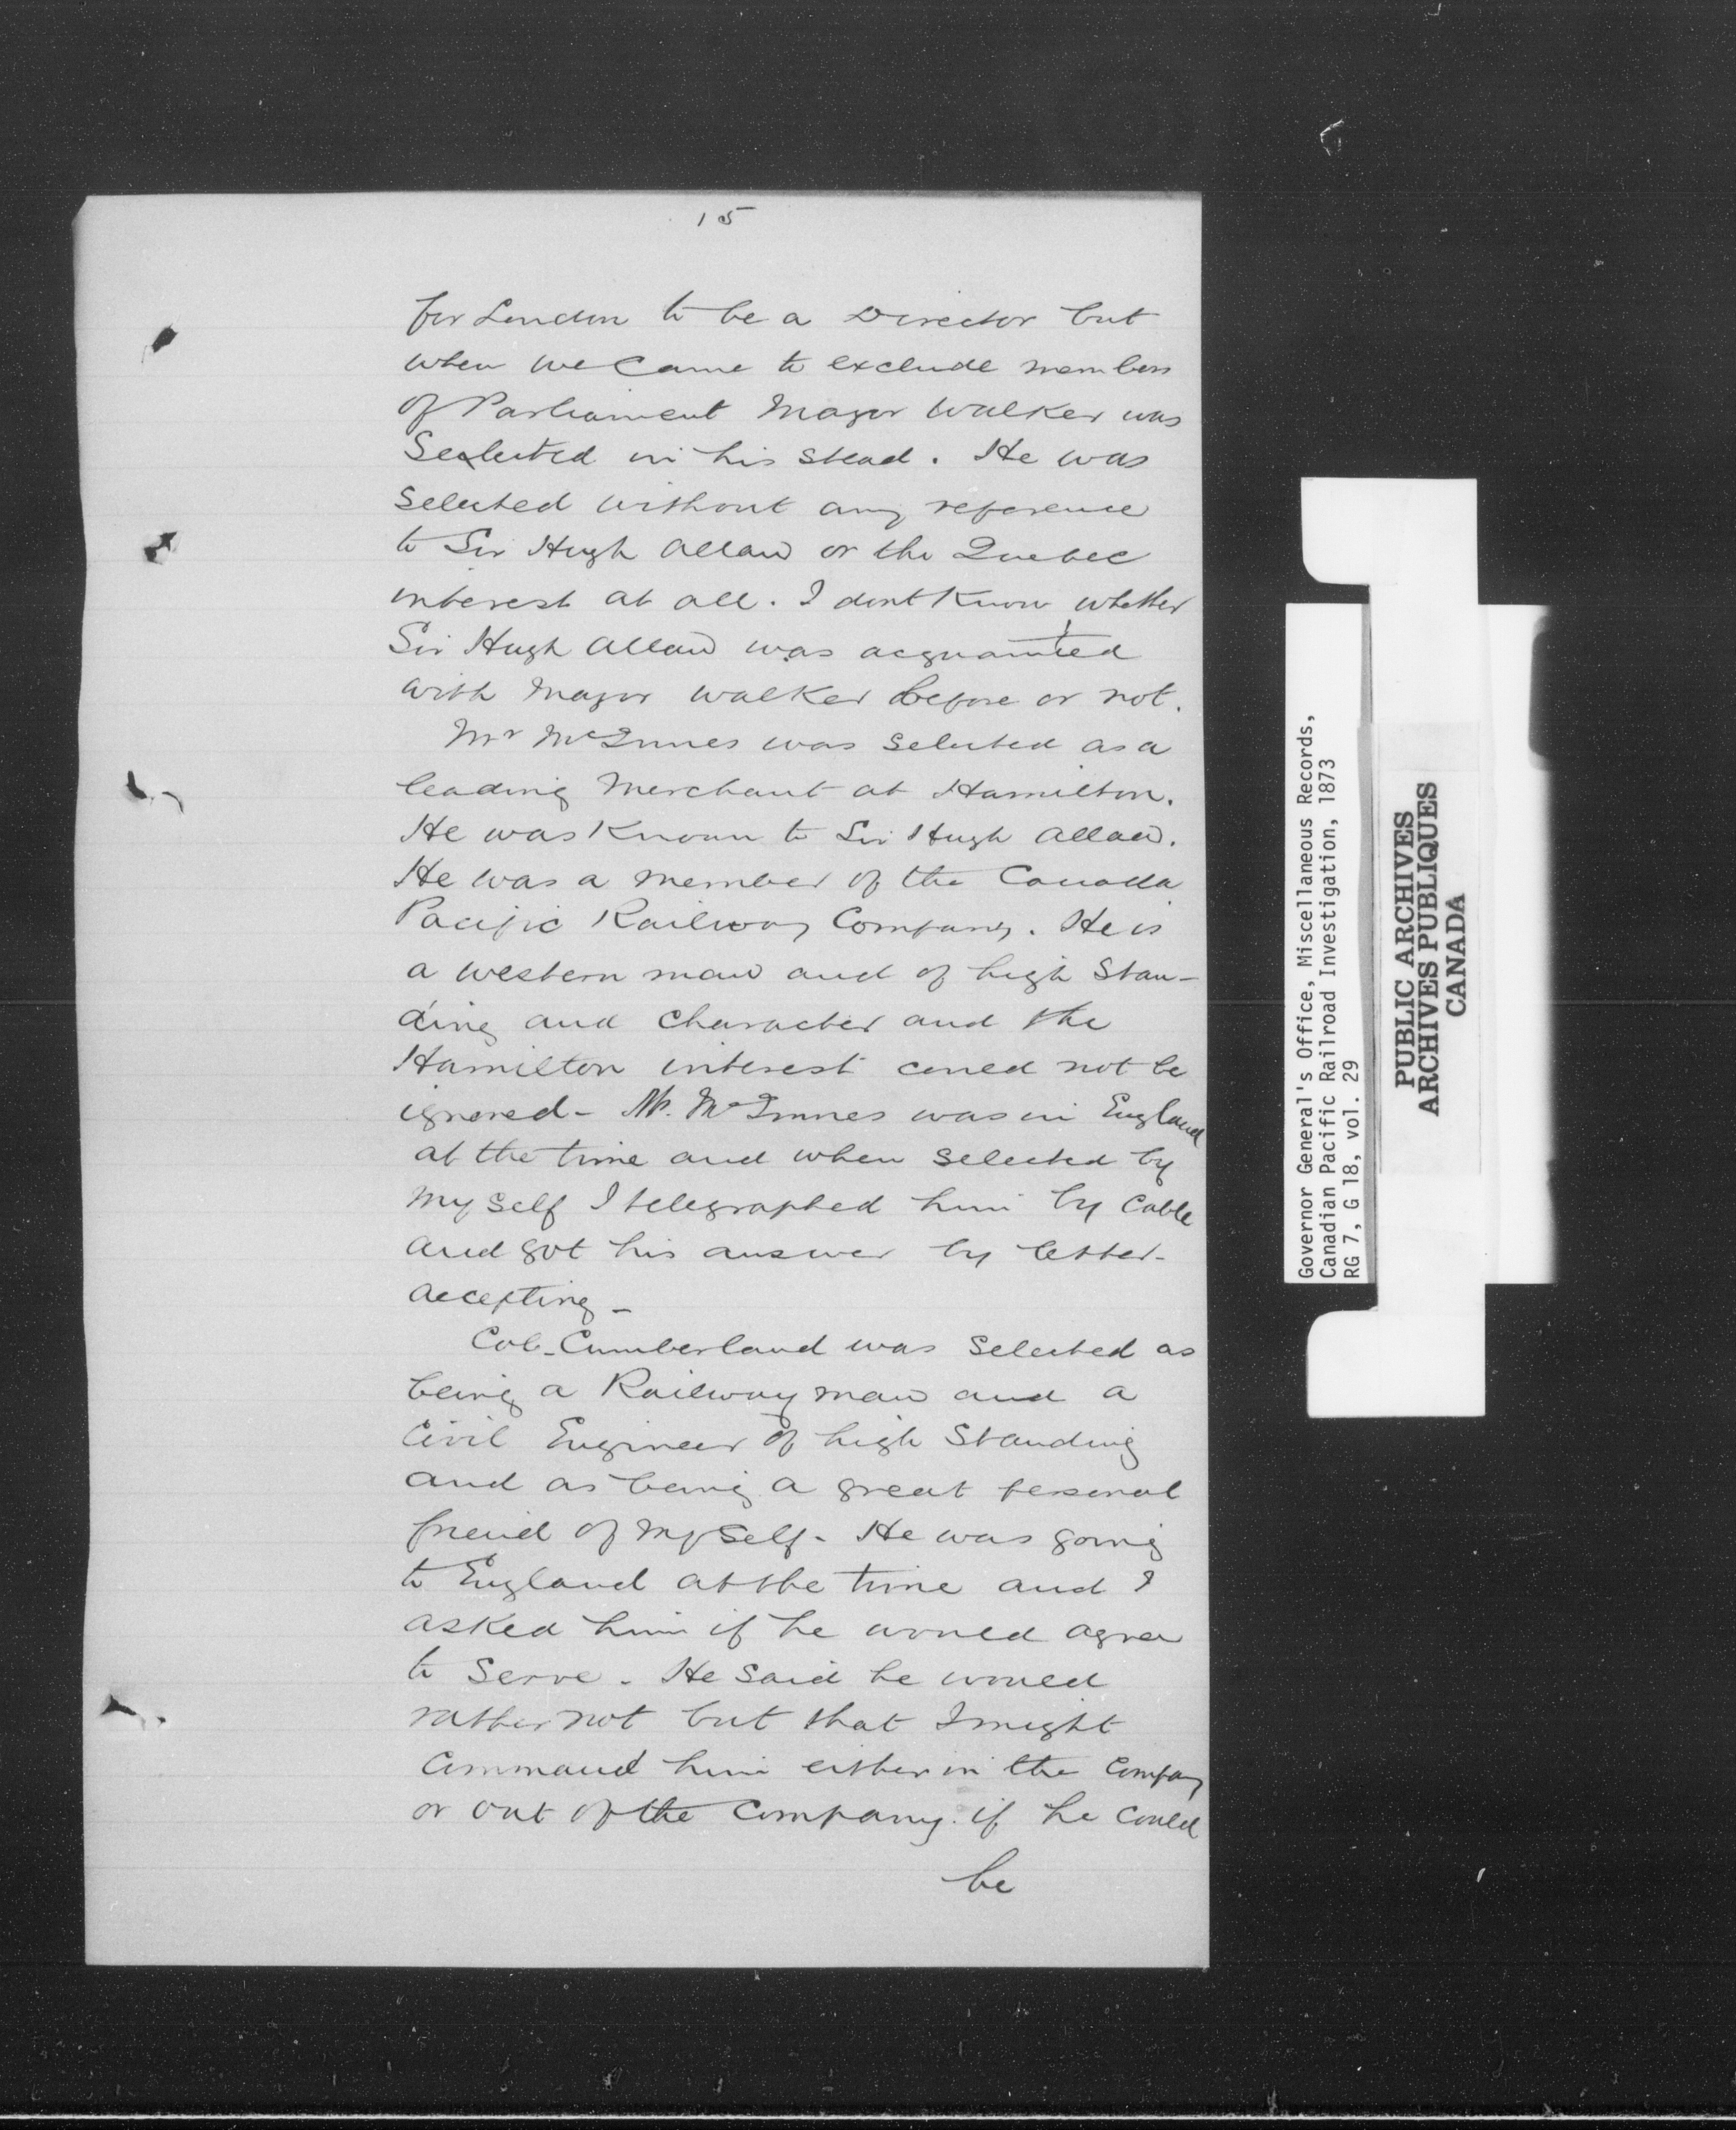 15
for London to be a Director but
when we came to exclude members
of Parliament Major Walker was
Selected in his stead. He was
selected without any reference
to Sir Hugh Allan or the Quebec
interest at all. I dont Know whether
Sir Hugh Allan was acquainted
with Major Walker before or not.
Mr McInnes was selected as a
leading Merchant at Hamilton.
He was Known to Sir Hugh Allan.
He was a member of the Canada
Pacific Railway Company. He is
a western man and of high Stan-
ding and Character and the
Hamilton interest could not be
ignored - Mr. McInnes was in England
at the time and when selected by
myself I telegraphed him by Cable
and got his answer by letter-
accepting -
Col. Cumberland was selected as
being a Railway man and a
Civil Engineer of high Standing
and as being a great personal
friend of myself. He was going
to England at the time and I
asked him if he would agree
to serve. He said he would
rather not but that I might
Command him either in the Company
or out of the Company. if he could
be
Governor General's Office, Miscellaneous Records,
Canadian Pacific Railroad Investigation, 1873
RG 7, G 18, vol. 29
PUBLIC ARCHIVES
ARCHIVES PUBLIQUES
CANADA